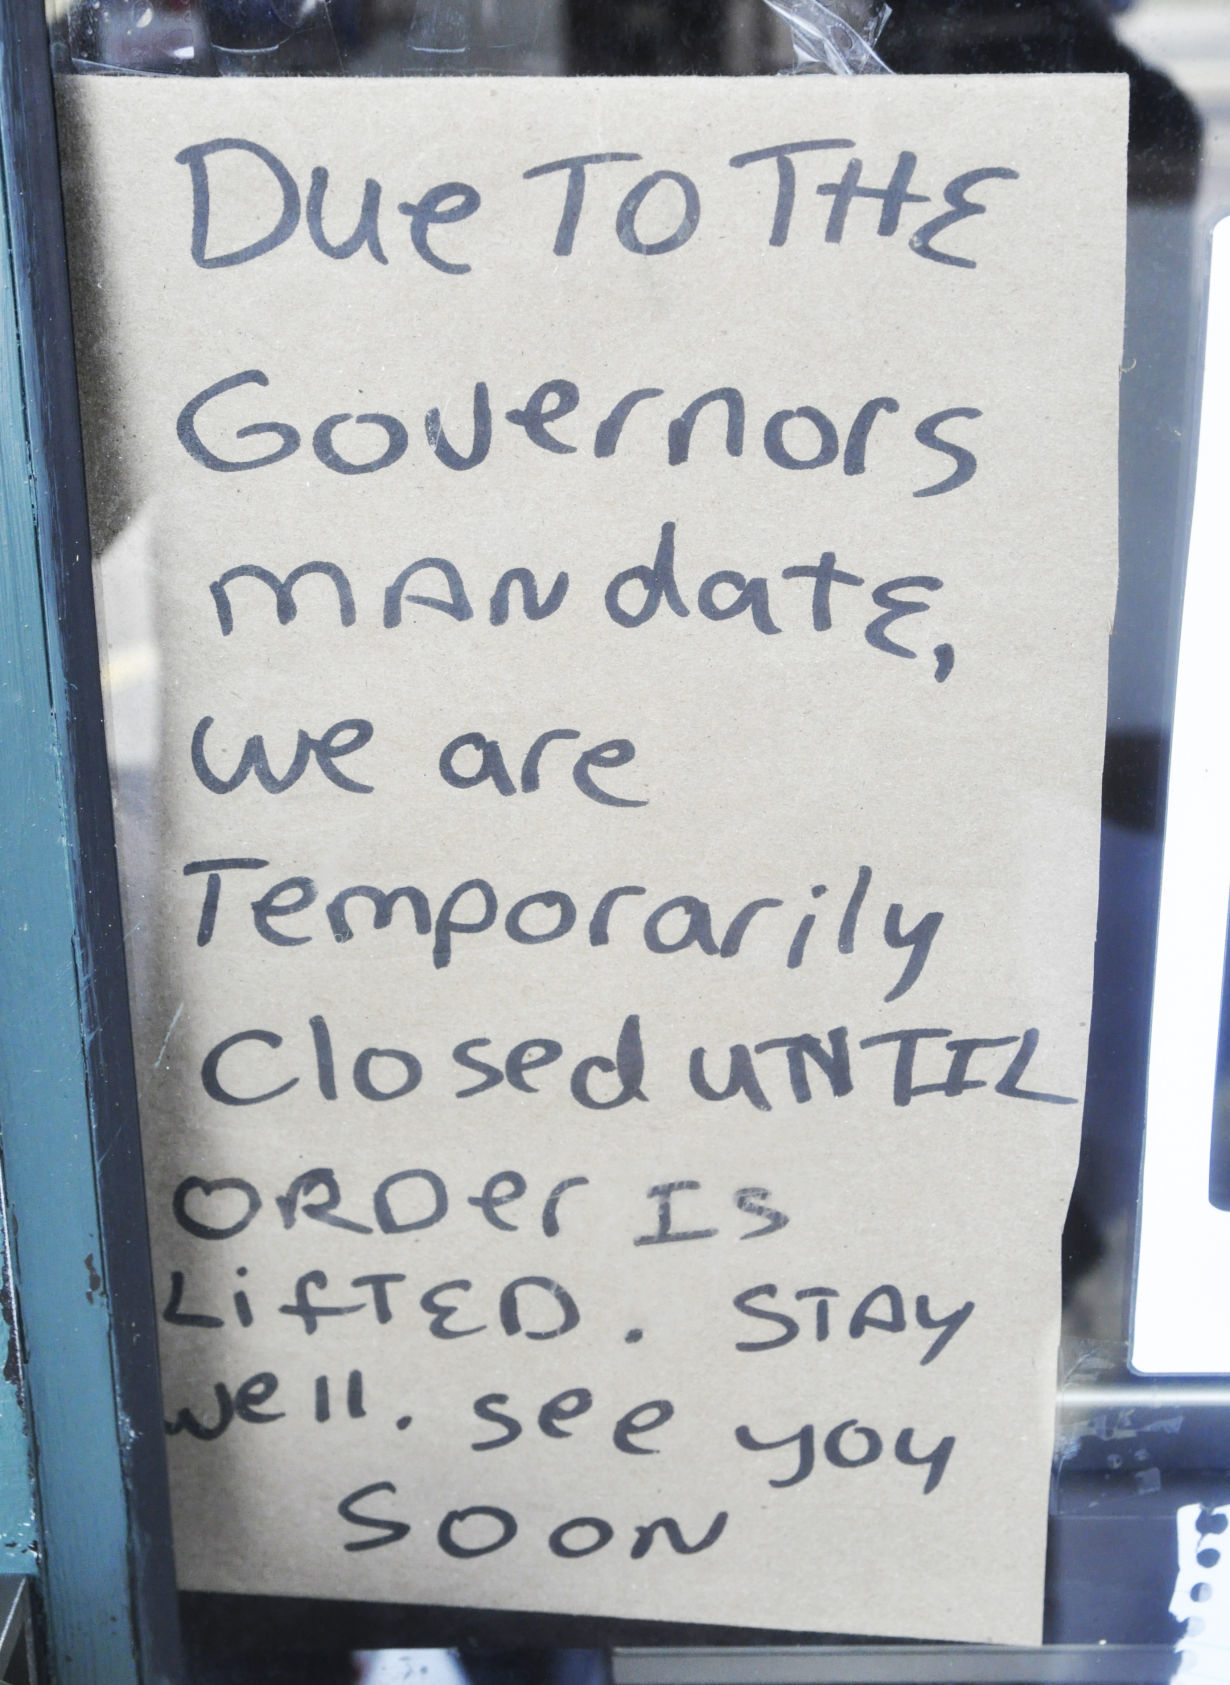 Due TO THE
Governors
mANdatE,
we are
Temporarily
Closed UNTIL
ORDer Is
LifTED. STAY
well. see you
SOON